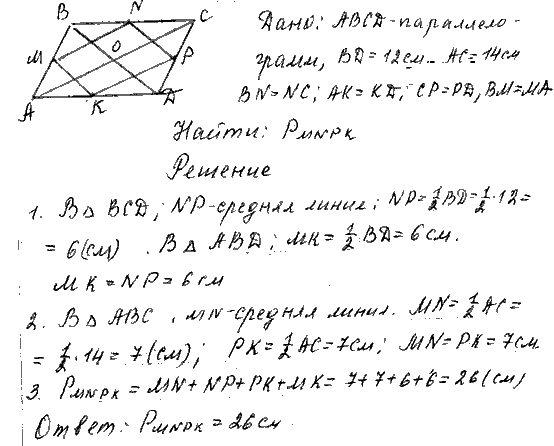 B N C
O
M P
A K D
Дано: ABCD-параллело-
грамм, BD=12см. AC=14см
BN=NC; AK=KD; CP=PD, BM=MA
Найти: P_MNPK
Решение
1. В △ BCD; NP-средняя линия; NP=1/2BD=1/2·12=
=6(см). В △ ABD; MK=1/2 BD=6см.
MK=NP=6см
2. В △ ABC, MN-средняя линия. MN=1/2 AC=
=1/2·14=7(см); PK=1/2 AC=7см; MN=PK=7см.
3. P_MNPK=MN+NP+PK+MK=7+7+6+6=26(см)
Ответ: P_MNPK=26см